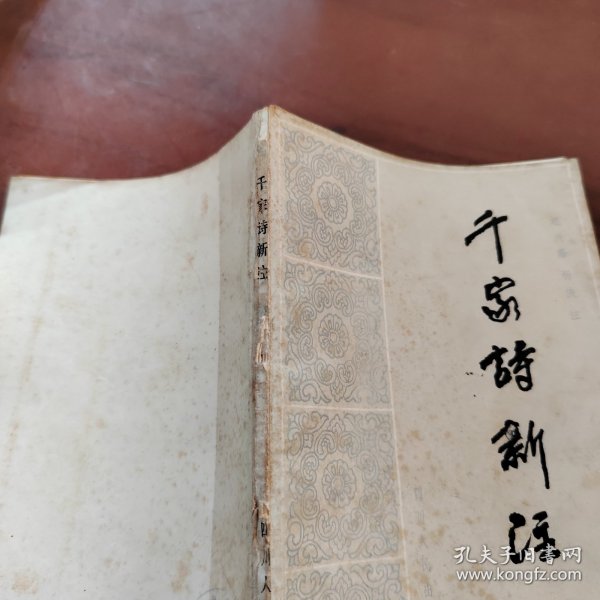 千家诗新注
千家詩新注
四川人
孔夫子旧书网
www.kongfz.com